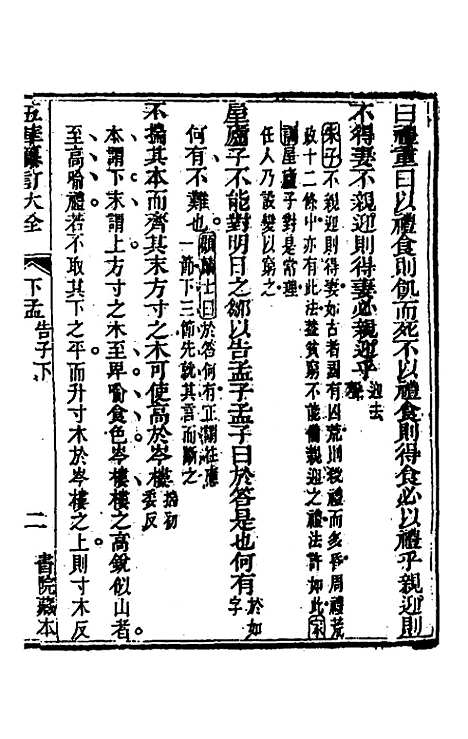 曰禮重曰以禮食則飢而死不以禮食則得食必以禮乎親迎則
不得妻不親迎則得妻必親迎乎
迎去
聲
朱子不親迎則得妻如古者國有凶荒則殺禮而多昏周禮荒
政十二條中亦有此法蓋貧窮不能備親迎之禮法許如此
講屋廬子對是常理
任人乃設變以窮之
屋廬子不能對明日之鄒以告孟子孟子曰於答是也何有
於如
字
何有不難也
顧麟士曰於答何有正關往應
一節下三節先就其言而斷之
不揣其本而齊其末方寸之木可使高於岑樓
揣初
委反
本謂下末謂上方寸之木至卑喻食色岑樓樓之高銳似山者
至高喻禮若不取其下之平而升寸木於岑樓之上則寸木反
五華纂訂大全
下孟
告子下
二
書院藏本